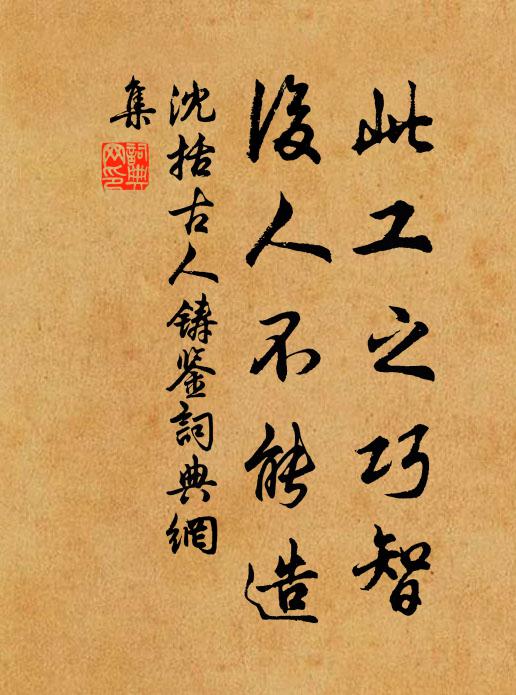 此工之巧智
後人不能造
沈括古人鑄鑒詞典網
集
詞典网印